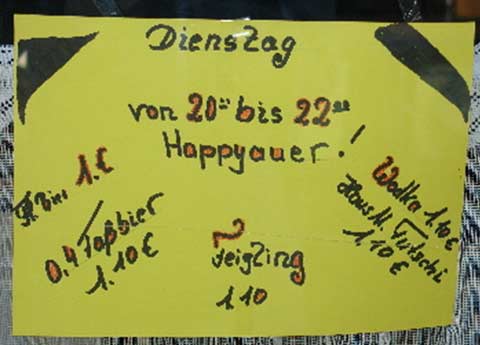 Dienstag
von 20°° bis 22°°
Happyauer!
Fl. Bier 1.€
0,4 Faßbier
1.10€
feigling
1.10
Wodka 1.10€
Haus M. Futschi
1.10€